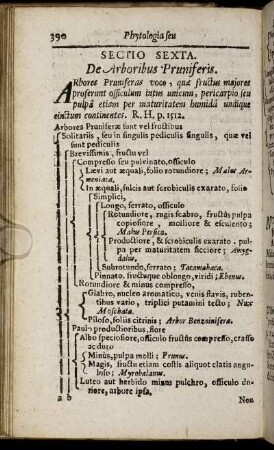 390 Phytologia seu
SECTIO SEXTA.
De Arboribus Pruniferis.
ARbores Pruniferas voco, quæ fructus majores
proferunt officulum intus unicum, pericarpio seu
pulpâ etiam per maturitatem humidâ undique
cinctum continentes. R. H. p. 1512.
Arbores Pruniferæ sunt vel fructibus
Solitariis, seu in singulis pediculis singulis, quæ vel
sunt pediculis
Brevissimis, fructu vel
Compresso seu pulvinato, officulo
Lævi aut æquali, folio rotundiore; Malus Ar-
meniaca.
In æquali, fulcis aut scrobiculis exarato, folio
Simplici,
Longo, serrato, officulo
Rotundiore, rugis scabro, fructûs pulpa
copiosiore, molliore & esculento;
Malus Persica.
Productiore, & scrobiculis exarato, pulpa
per maturitatem sicciore; Amyg-
dalus.
Subrotundo, serrato; Tacamahaca.
Pinnato, fructuque oblongo, viridi; Ebenus.
Rotundiore & minus compresso,
Glabro, nucleo aromatico, venis flavis, ruben-
tibus vario, triplici putamini tecto; Nux
Moschata.
Piloso, foliis citrinis; Arbor Benzoinifera.
Paulo productioribus, flore
Albo speciosiore, officulo fructûs compresso, crasso
ac duro
Minùs, pulpa molli; Prunus.
Magis, fructu etiam costis aliquot elatis angu-
loso; Myrobalanus.
Luteo aut herbido minus pulchro, officulo du-
riore, arbore ipsa,
a b Non